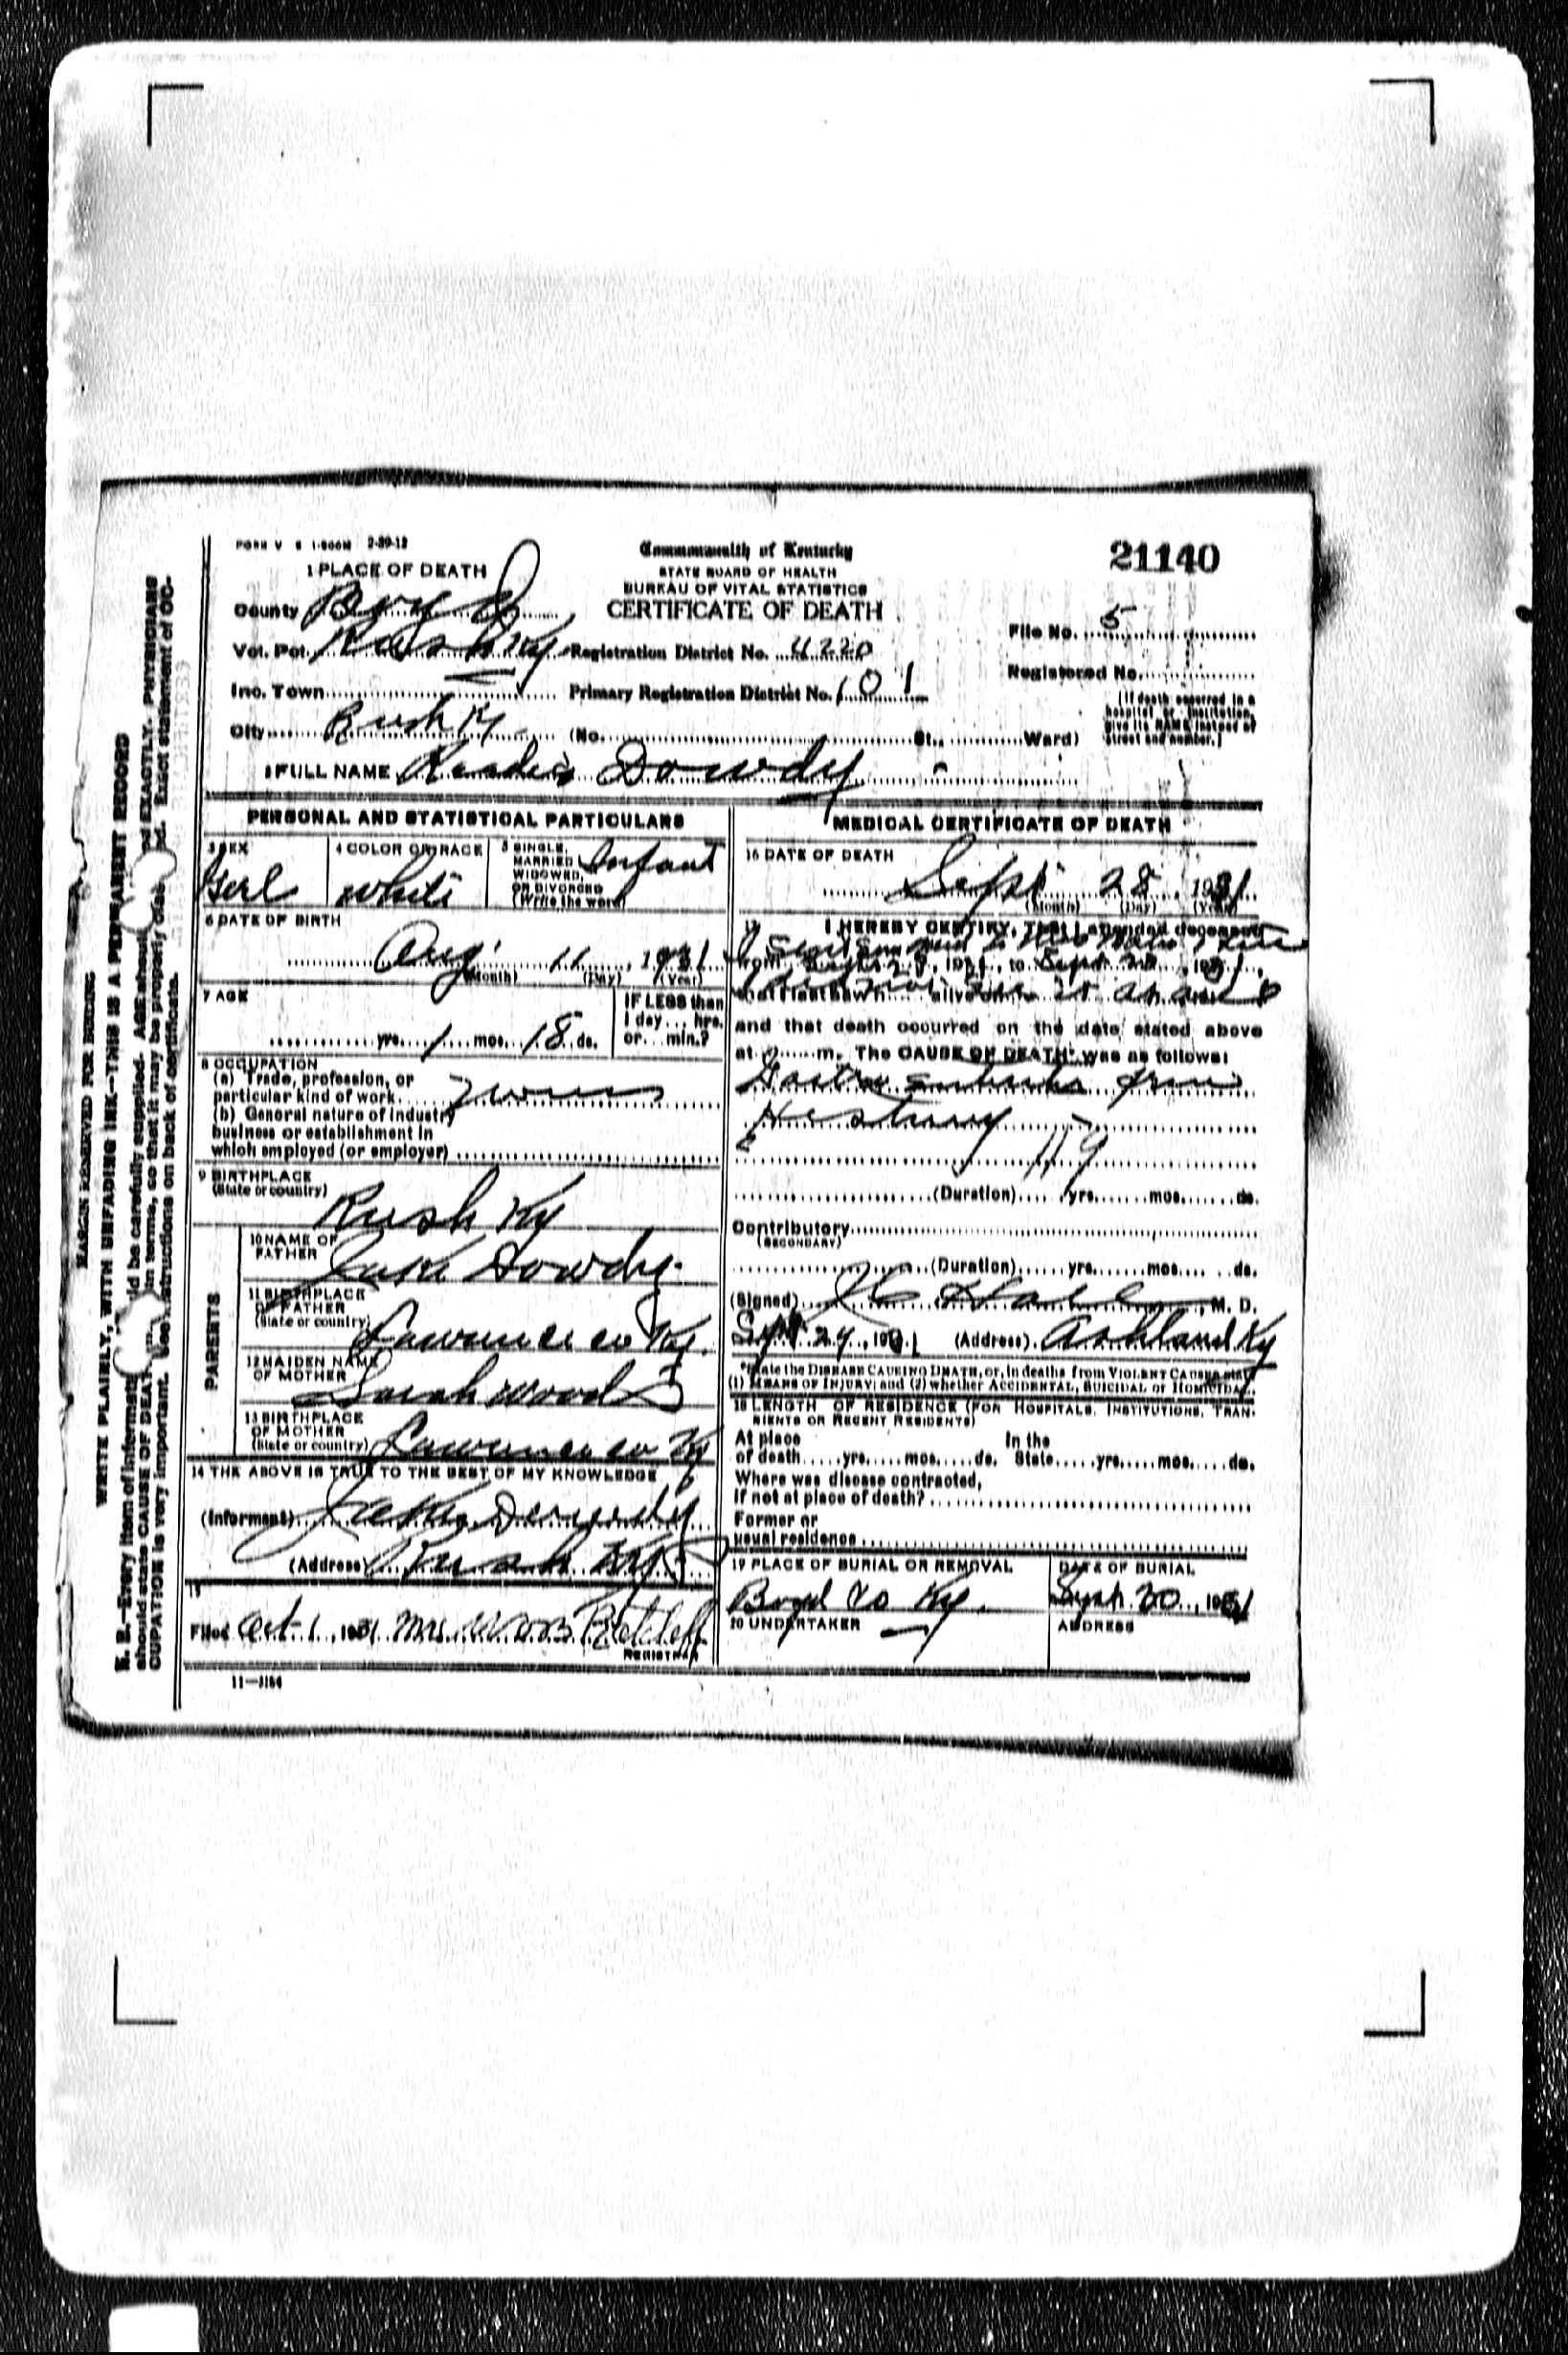 FORM V S 1-500M 2-29-12
Commonwealth of Kentucky
STATE BOARD OF HEALTH
BUREAU OF VITAL STATISTICS
CERTIFICATE OF DEATH
21140
1 PLACE OF DEATH
County Boyd
Vot. Pct. Rush Ky Registration District No. 4220
File No. 5
Inc. Town Primary Registration District No. 101
Registered No.
City Rush Ky (No. St., Ward)
(If death occurred in a
hospital or institution,
give its NAME instead of
street and number.)
2 FULL NAME Dowdy
PERSONAL AND STATISTICAL PARTICULARS
3 SEX
Girl
4 COLOR OR RACE
White
5 SINGLE,
MARRIED
WIDOWED,
OR DIVORCED
(Write the word)
Infant
6 DATE OF BIRTH
Aug 11, 1931
(Month) (Day) (Year)
7 AGE
yrs. 1 mos. 18 ds.
IF LESS than
1 day... hrs.
or... min.?
8 OCCUPATION
(a) Trade, profession, or
particular kind of work
(b) General nature of industry
business or establishment in
which employed (or employer)
9 BIRTHPLACE
(State or country)
Rush Ky
PARENTS
10 NAME OF
FATHER
Dowdy
11 BIRTHPLACE
OF FATHER
(State or country)
Lawrence co Ky.
12 MAIDEN NAME
OF MOTHER
Sarah Woods
13 BIRTHPLACE
OF MOTHER
(State or country)
Lawrence co Ky
14 THE ABOVE IS TRUE TO THE BEST OF MY KNOWLEDGE
(Informant) Dowdy
(Address) Rush Ky
15
Filed Oct 1, 1931 Mrs.
REGISTRAR
11—3184
MEDICAL CERTIFICATE OF DEATH
16 DATE OF DEATH
Sept 28, 1931
(Month) (Day) (Year)
17 I HEREBY CERTIFY, That I attended deceased
from Sept 28, 1931, to Sept 28, 1931,
that I last saw h alive on
and that death occurred on the date stated above
at m. The CAUSE OF DEATH* was as follows:
from
History
119
(Duration) yrs. mos. ds.
Contributory
(SECONDARY)
(Duration) yrs. mos. ds.
(Signed) M. D.
Sept 29, 1931 (Address) Ashland Ky
*State the DISEASE CAUSING DEATH, or, in deaths from VIOLENT CAUSES state
(1) MEANS OF INJURY; and (2) whether ACCIDENTAL, SUICIDAL or HOMICIDAL.
18 LENGTH OF RESIDENCE (FOR HOSPITALS, INSTITUTIONS, TRAN-
SIENTS OR RECENT RESIDENTS)
At place In the
of death yrs. mos. ds. State yrs. mos. ds.
Where was disease contracted,
if not at place of death?
Former or
usual residence
19 PLACE OF BURIAL OR REMOVAL
Boyd Co Ky.
DATE OF BURIAL
Sept. 30, 1931
20 UNDERTAKER
ADDRESS
MARGIN RESERVED FOR BINDING
WRITE PLAINLY, WITH UNFADING INK—THIS IS A PERMANENT RECORD
N. B.—Every item of information should be carefully supplied. AGE should EXACTLY. PHYSICIANS
should state CAUSE OF DEATH in terms, so that it may be properly classified. Exact statement of OC-
CUPATION is very important. See instructions on back of certificate.